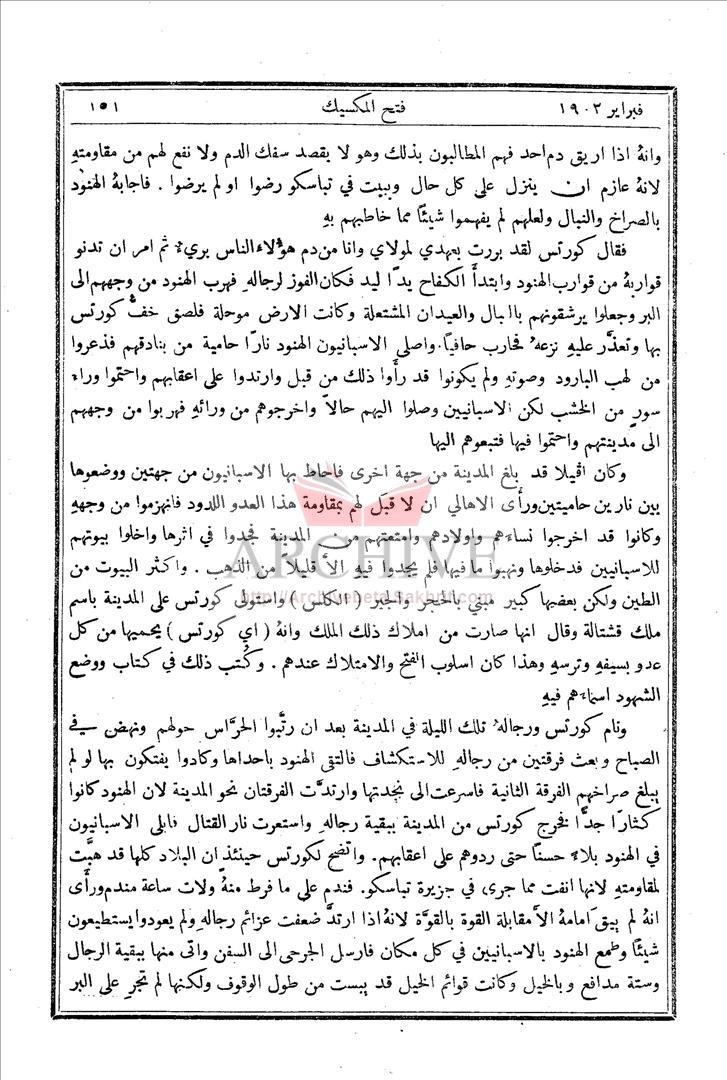 فبراير ١٩٠٢
فتح المكسيك
١٥١
وانهُ اذا اريق دم احد فهم المطالبون بذلك وهو لا يقصد سفك الدم ولا نفع لهم من مقاومتهِ
لانهُ عازم ان ينزل على كل حال ويبيت في تباسكو رضوا او لم يرضوا . فاجابهُ الهنود
بالصراخ والنبال ولعلهم لم يفهموا شيئًا مما خاطبهم بهِ
فقال كورتس لقد بررت بعهدي لمولاي وانا من دم هؤلاء الناس بريءٌ ثم امر ان تدنو
قواربهُ من قوارب الهنود وابتدأ الكفاح يدًا ليد فكان الفوز لرجالهِ فهرب الهنود من وجههم الى
البر وجعلوا يرشقونهم بالنبال والعيدان المشتعلة وكانت الارض موحلة فلصق خفُّ كورتس
بها وتعذَّر عليهِ نزعهُ فحارب حافيًا. واصلى الاسبانيون الهنود نارًا حامية من بنادقهم فذعروا
من لهب البارود وصوتهِ ولم يكونوا قد رأوا ذلك من قبل وارتدوا على اعقابهم واحتموا وراء
سورٍ من الخشب لكن الاسبانيين وصلوا اليهم حالاً واخرجوهم من ورائهِ فهربوا من وجههم
الى مدينتهم واحتموا فيها فتبعوهم اليها
وكان اڤيلا قد بلغ المدينة من جهة اخرى فاحاط بها الاسبانيون من جهتين ووضعوها
بين نارين حاميتين ورأى الاهالي ان لا قبَل لهم بمقاومة هذا العدو اللدود فانهزموا من وجههِ
وكانوا قد اخرجوا نساءهم واولادهم وامتعتهم من المدينة فجدوا في اثرها واخلوا بيوتهم
للاسبانيين فدخلوها ونهبوا ما فيها فلم يجدوا فيهِ الاَّ قليلاً من الذهب . واكثر البيوت من
الطين ولكن بعضها كبير مبني بالحجر والجير ( الكلس ) واستولى كورتس على المدينة باسم
ملك قشتالة وقال انها صارت من املاك ذلك الملك وانهُ ( اي كورتس ) يحميها من كل
عدو بسيفهِ وترسهِ وهذا كان اسلوب الفتح والامتلاك عندهم . وكُتب ذلك في كتاب ووضع
الشهود اسماءهم فيهِ
ونام كورتس ورجالهُ تلك الليلة في المدينة بعد ان رتَّبوا الحرَّاس حولهم ونهض في
الصباح وبعث فرقتين من رجالهِ للاستكشاف فالتقى الهنود باحداها وكادوا يفتكون بها لو لم
يبلغ صراخهم الفرقة الثانية فاسرعت الى نجدتها وارتدَّت الفرقتان نحو المدينة لان الهنود كانوا
كثارًا جدًّا فخرج كورتس من المدينة ببقية رجالهِ واستعرت نار القتال فابلى الاسبانيون
في الهنود بلاءً حسنًا حتى ردوهم على اعقابهم. واتضح لكورتس حينئذٍ ان البلاد كلها قد هبَّت
لمقاومتهِ لانها انفت مما جرى في جزيرة تباسكو. فندم على ما فرط منهُ ولات ساعة مندم ورأى
انهُ لم يبق امامهُ الاَّ مقابلة القوة بالقوَّة لانهُ اذا ارتدَّ ضعفت عزائم رجالهِ ولم يعودوا يستطيعون
شيئًا وطمع الهنود بالاسبانيين في كل مكان فارسل الجرحى الى السفن واتى منها ببقية الرجال
وستة مدافع وبالخيل وكانت قوائم الخيل قد يبست من طول الوقوف ولكنها لم تجرِ على البر
ARCHIVE
http://Archivebeta.Sakhrit.com